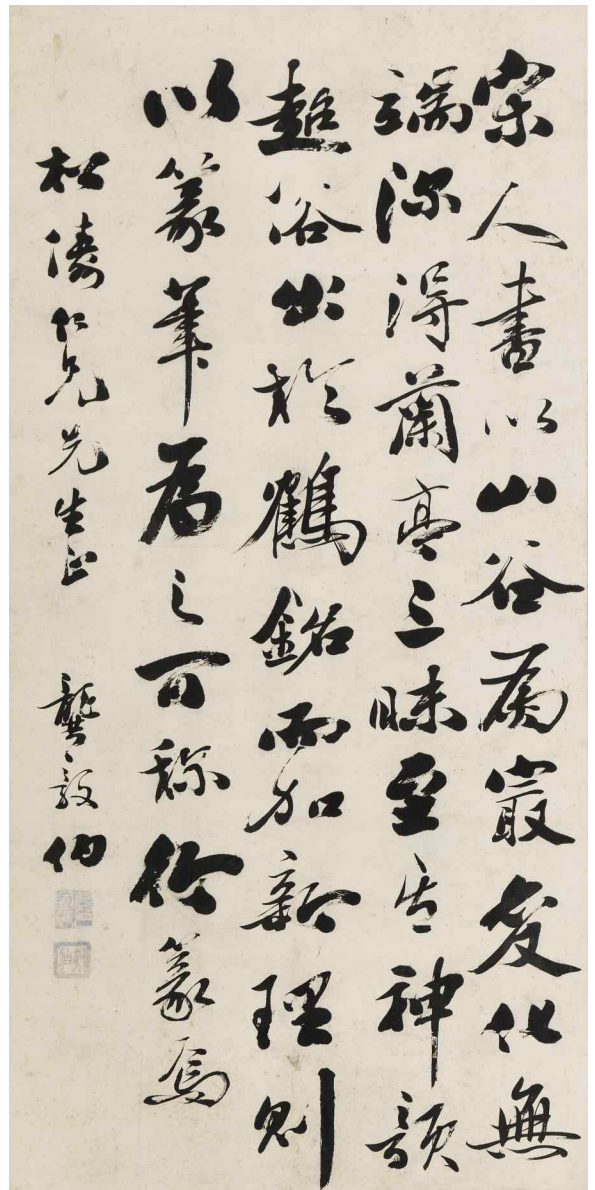 宋人書以山谷為最變化無
端深得蘭亭三昧至其神韻
超俗出於鶴銘而加新理則
以篆筆為之可稱行篆焉
松濤仁兄先生正
龔